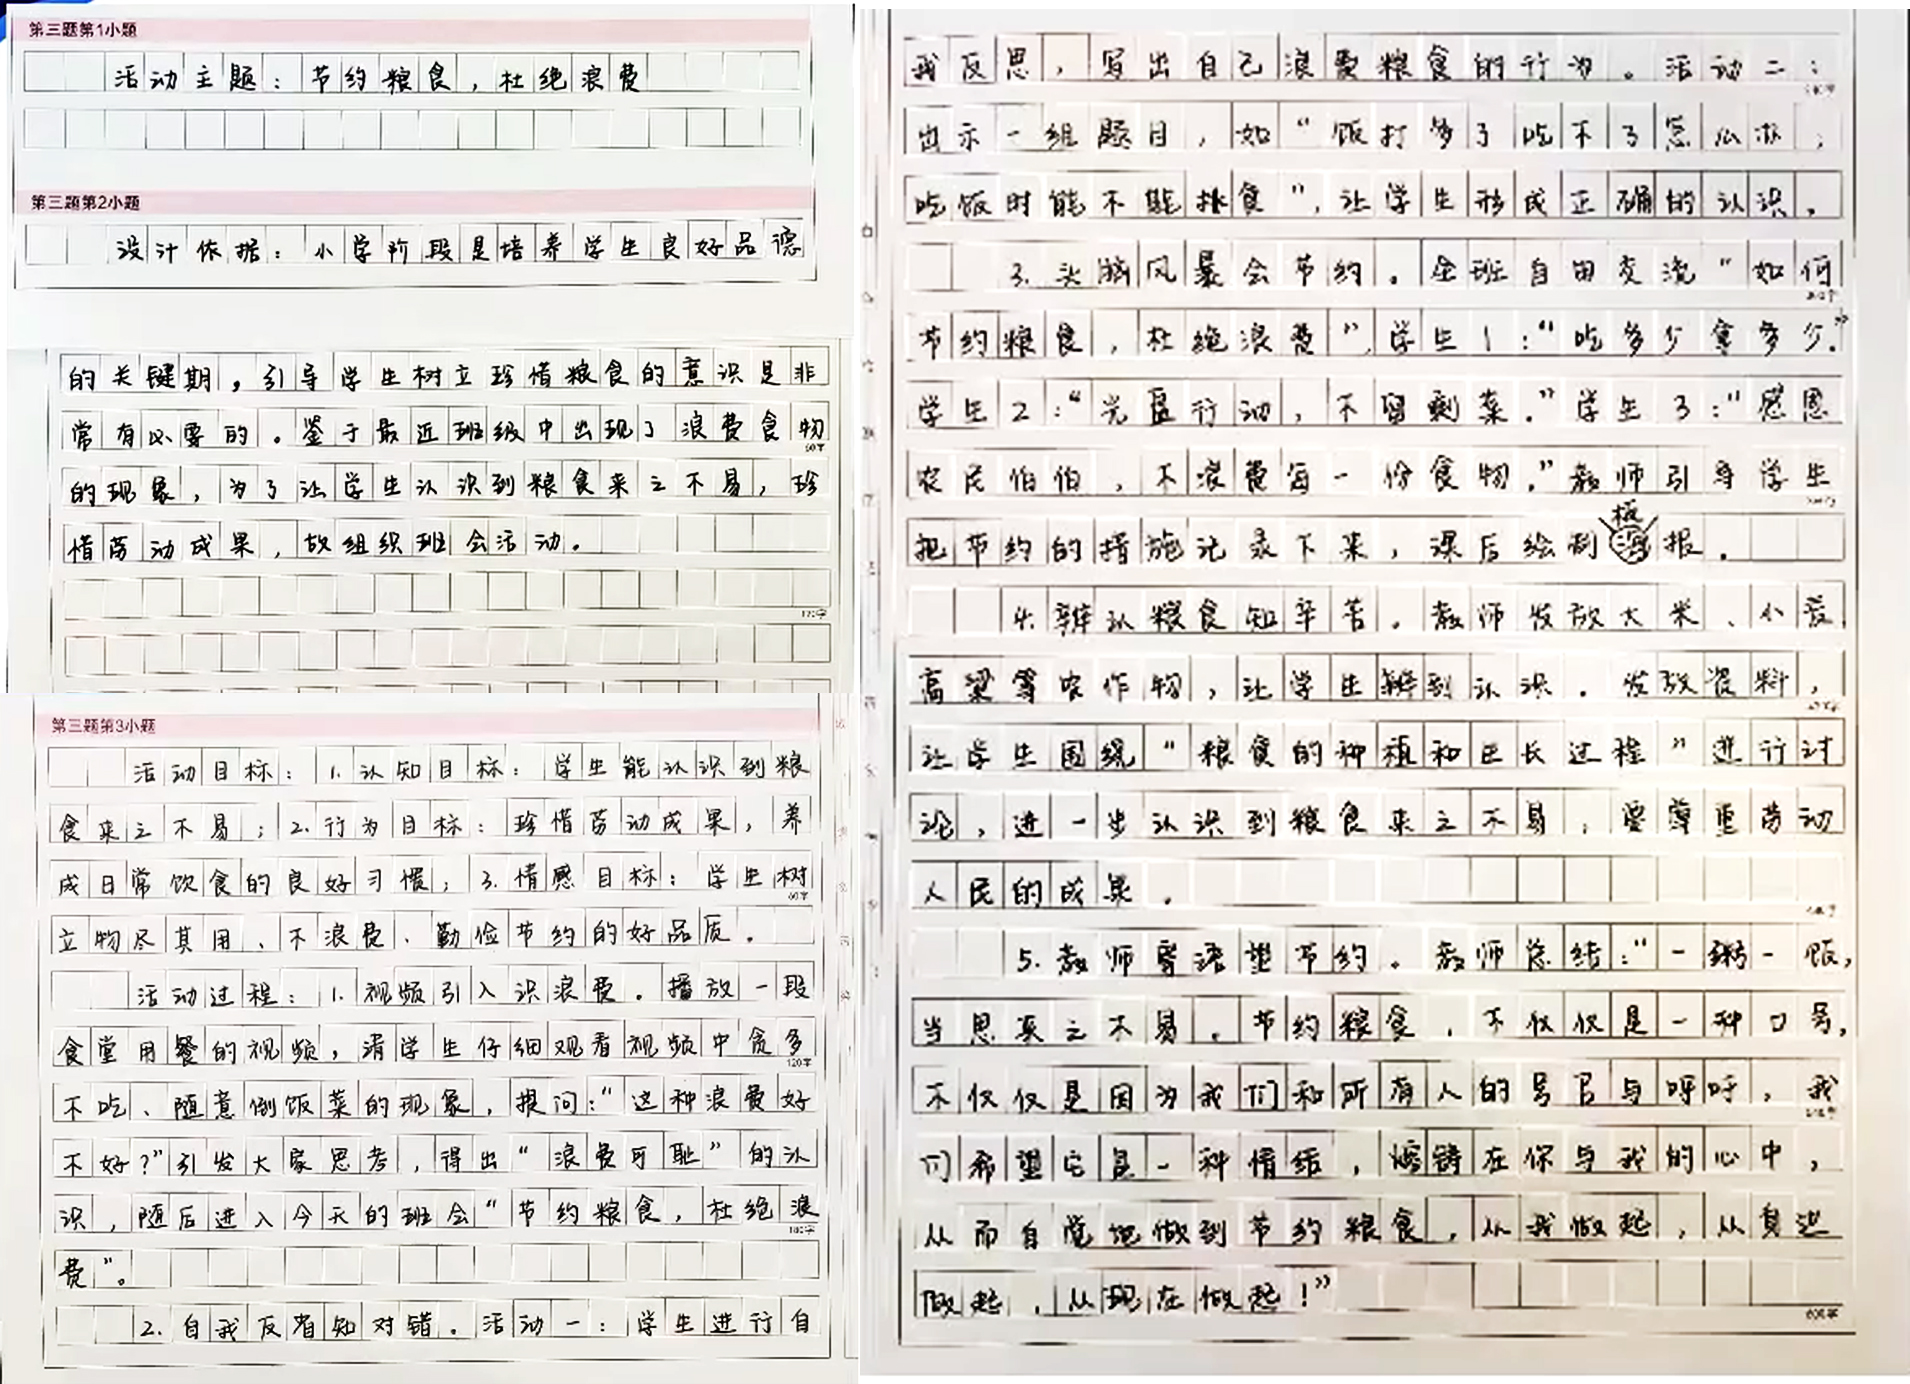 第三题第1小题
活动主题：节约粮食，杜绝浪费
第三题第2小题
设计依据：小学阶段是培养学生良好品德
的关键期，引导学生树立珍惜粮食的意识是非
常有必要的。鉴于最近班级中出现了浪费食物
60字
的现象，为了让学生认识到粮食来之不易，珍
惜劳动成果，故组织班会活动。
120字
第三题第3小题
活动目标：1.认知目标：学生能认识到粮
食来之不易；2.行为目标：珍惜劳动成果，养
成日常饮食的良好习惯；3.情感目标：学生树
60字
立物尽其用、不浪费、勤俭节约的好品质。
活动过程：1.视频引入识浪费。播放一段
食堂用餐的视频，请学生仔细观看视频中贪多
120字
不吃、随意倒饭菜的现象，提问：“这种浪费好
不好？”引发大家思考，得出“浪费可耻”的认
识，随后进入今天的班会“节约粮食，杜绝浪
180字
费”。
2.自我反省知对错。活动一：学生进行自
我反思，写出自己浪费粮食的行为。活动二：
出示一组题目，如“饭打多了吃不了怎么办，
吃饭时能不能挑食”，让学生形成正确的认识。
3.头脑风暴会节约。全班自由交流“如何
节约粮食，杜绝浪费”学生1：“吃多少拿多少。”
学生2：“光盘行动，不留剩菜。”学生3：“感恩
农民伯伯，不浪费每一份食物。”教师引导学生
把节约的措施记录下来，课后绘制板报。
4.辨认粮食知辛苦。教师发放大米、小麦
高粱等农作物，让学生辨别认识。发放资料，
让学生围绕“粮食的种植和生长过程”进行讨
论，进一步认识到粮食来之不易，要尊重劳动
人民的成果。
5.教师寄语望节约。教师总结：“一粥一饭，
当思来之不易。节约粮食，不仅仅是一种口号，
不仅仅是因为我们和所有人的号召与呼吁，我
们希望它是一种情结，熔铸在你与我的心中，
从而自觉地做到节约粮食，从我做起，从身边
做起，从现在做起！”
600字